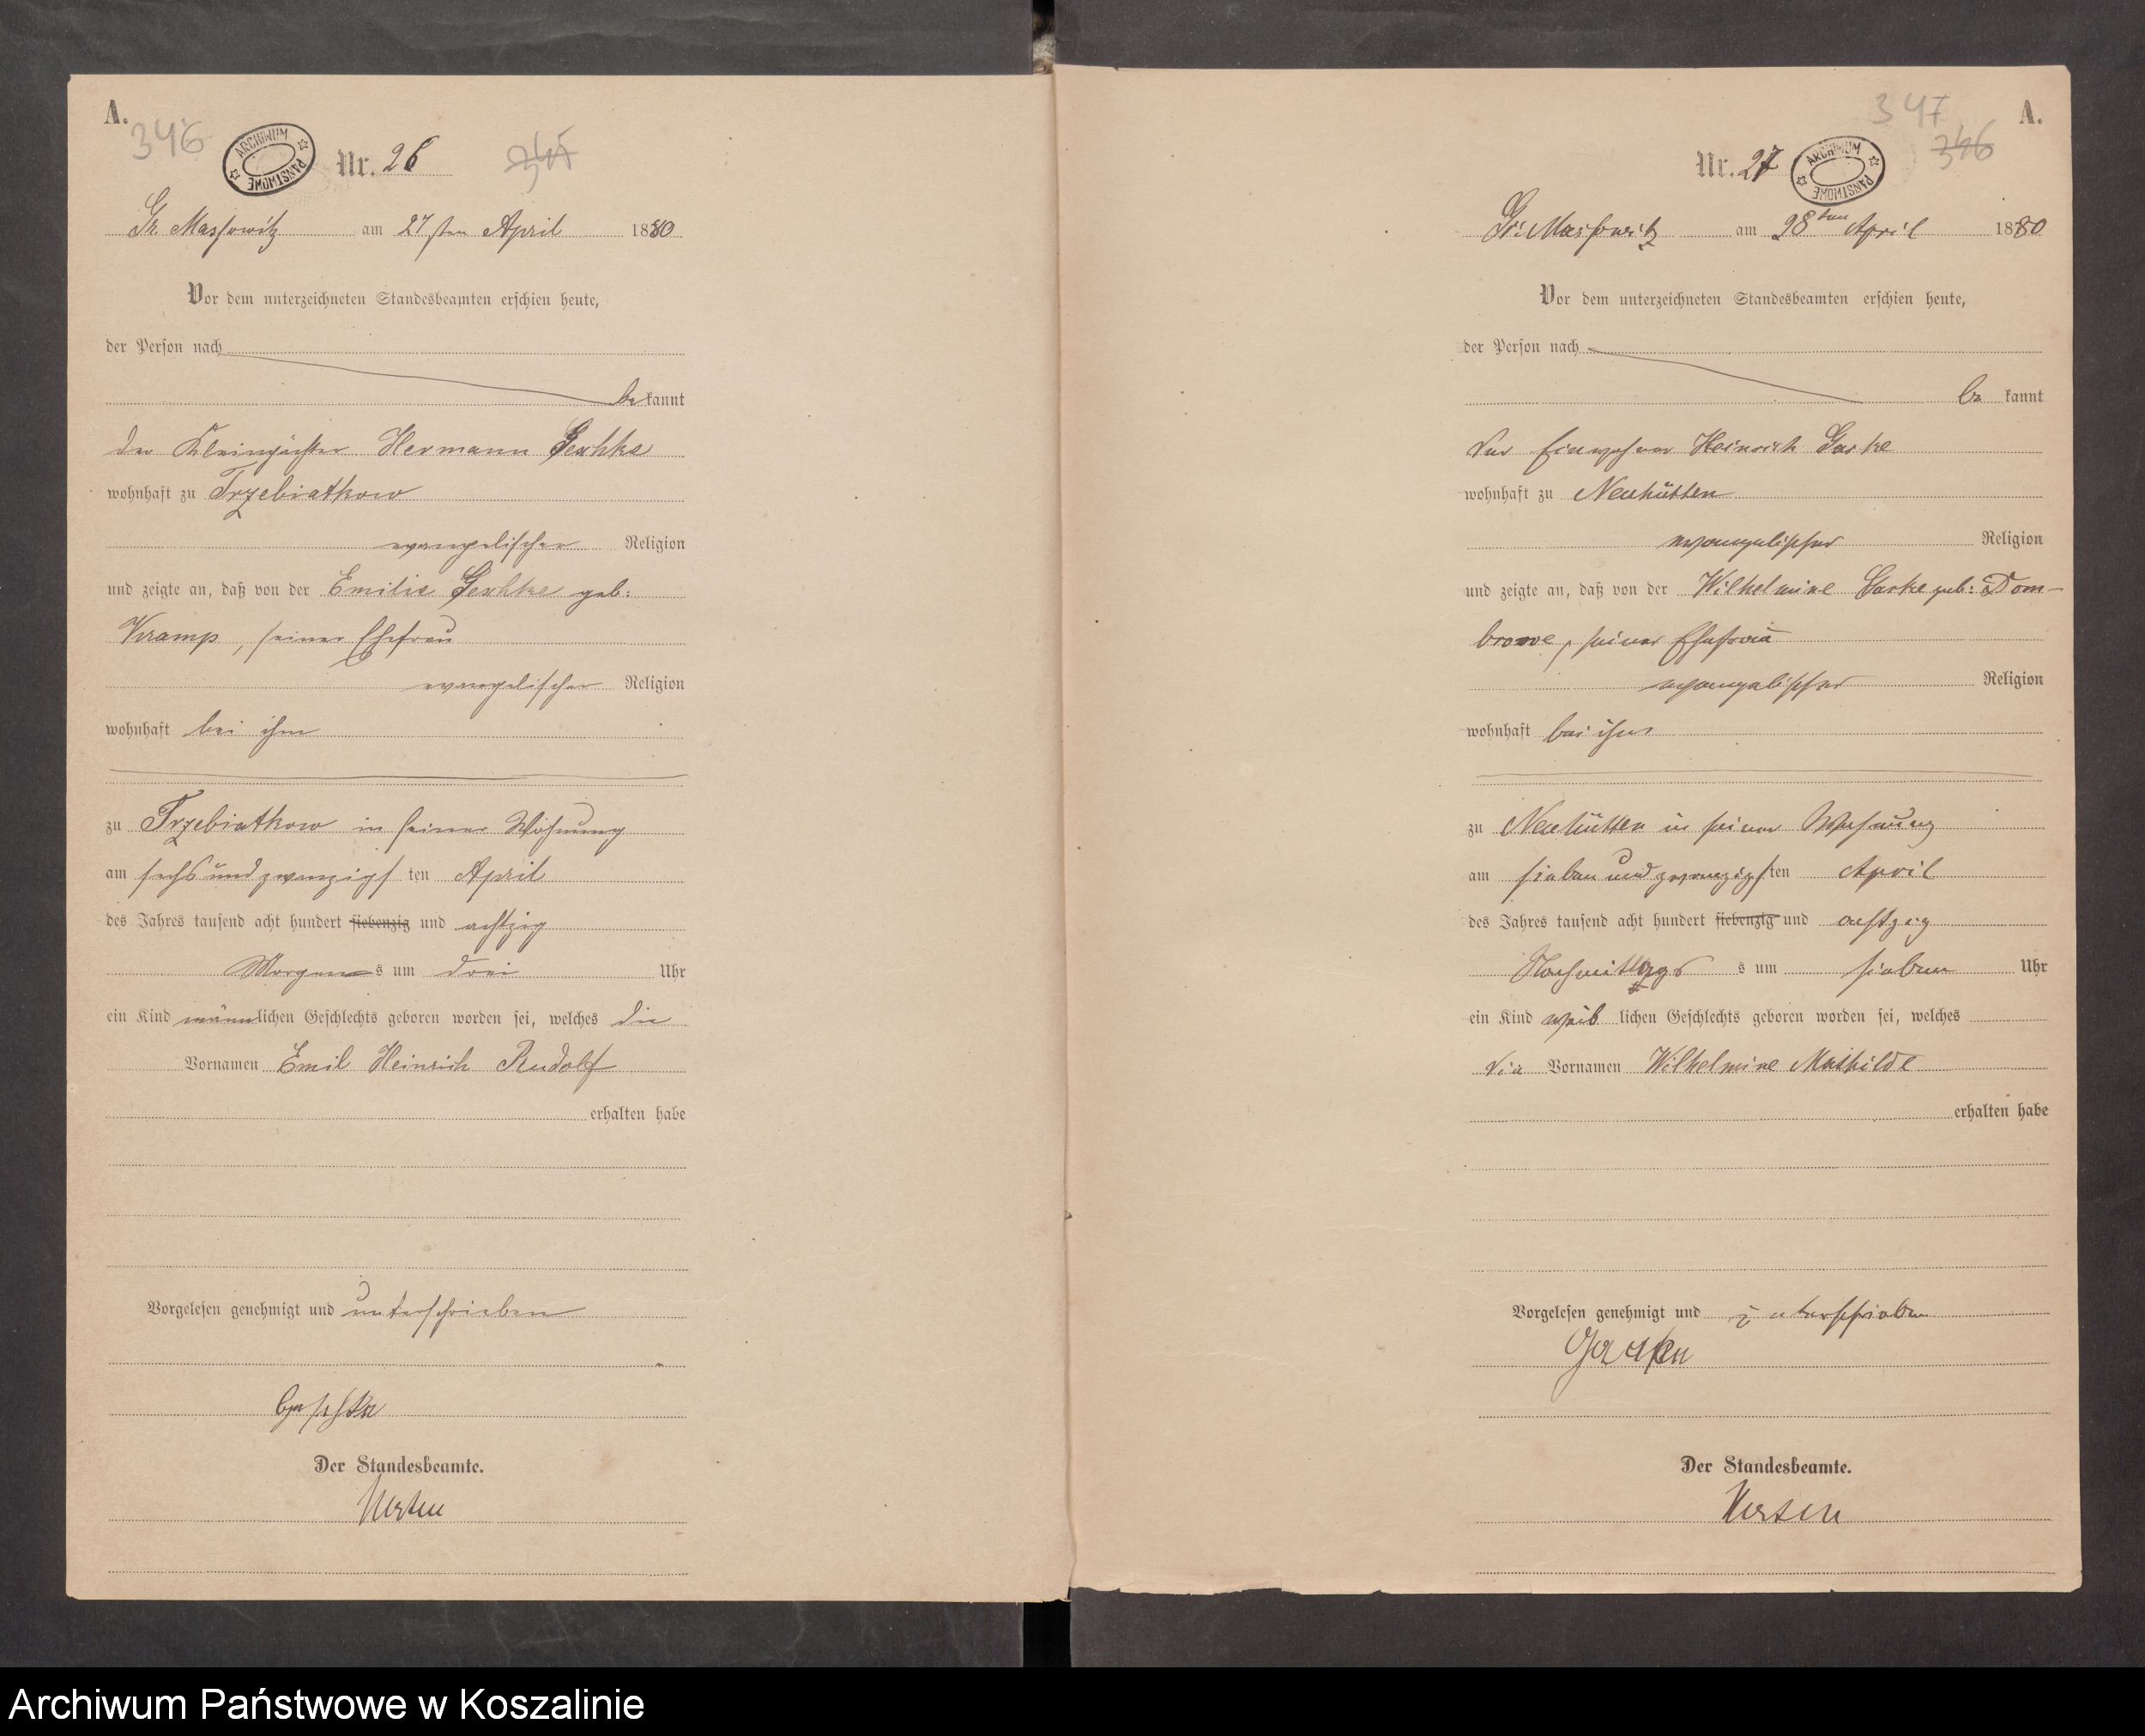 A.
346
ARCHIWUM PAŃSTWOWE
Nr. 26
345
Gr. Massowitz am 27sten April 1880
Vor dem unterzeichneten Standesbeamten erschien heute,
der Person nach
be kannt
der Kleinpächter Hermann Geschke
wohnhaft zu Trzebiatkow
evangelischer Religion
und zeigte an, daß von der Emilie Geschke geb:
Kramp, seiner Ehefrau
evangelischer Religion
wohnhaft bei ihm
zu Trzebiatkow in seiner Wohnung
am sechsundzwanzigsten April
des Jahres tausend acht hundert siebenzig und achtzig
Morgens um drei Uhr
ein Kind männlichen Geschlechts geboren worden sei, welches die
Vornamen Emil Heinrich Rudolf
erhalten habe
Vorgelesen genehmigt und unterschrieben
Geschke
Der Standesbeamte.
A.
347
346
Nr. 27
ARCHIWUM PAŃSTWOWE
Gr: Massowitz am 28ten April 1880
Vor dem unterzeichneten Standesbeamten erschien heute,
der Person nach
be kannt
der Einwohner Heinrich Garke
wohnhaft zu Neuhütten
evangelischer Religion
und zeigte an, daß von der Wilhelmine Garke geb: Dom-
browe, seiner Ehefrau
evangelischer Religion
wohnhaft bei ihm
zu Neuhütten in seiner Wohnung
am siebenundzwanzigsten April
des Jahres tausend acht hundert siebenzig und achtzig
Nachmittags s um sieben Uhr
ein Kind weiblichen Geschlechts geboren worden sei, welches
die Vornamen Wilhelmine Mathilde
erhalten habe
Vorgelesen genehmigt und unterschrieben
Der Standesbeamte.
Archiwum Państwowe w Koszalinie